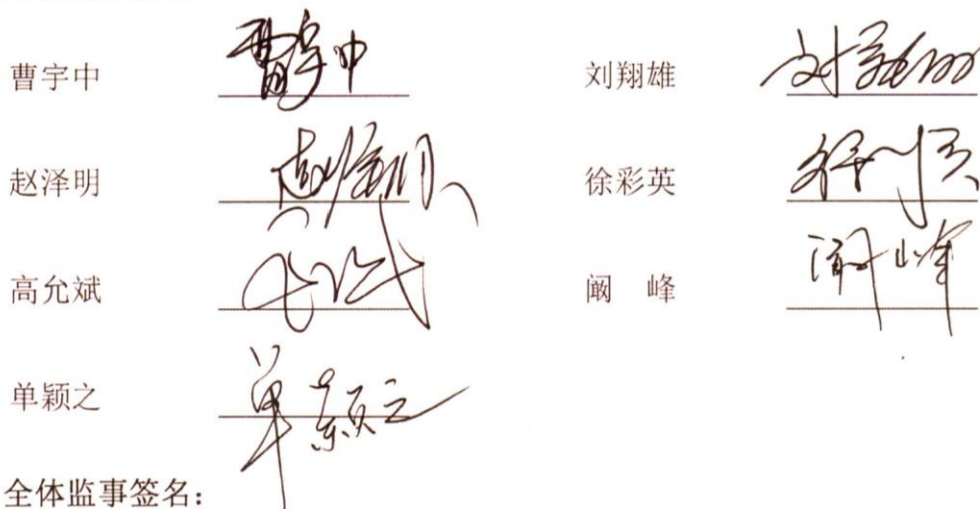 曹宇中 曹宇中 刘翔雄 刘翔雄
赵泽明 赵泽明 徐彩英
高允斌 阚 峰 阚峰
单颖之 单颖之
全体监事签名：